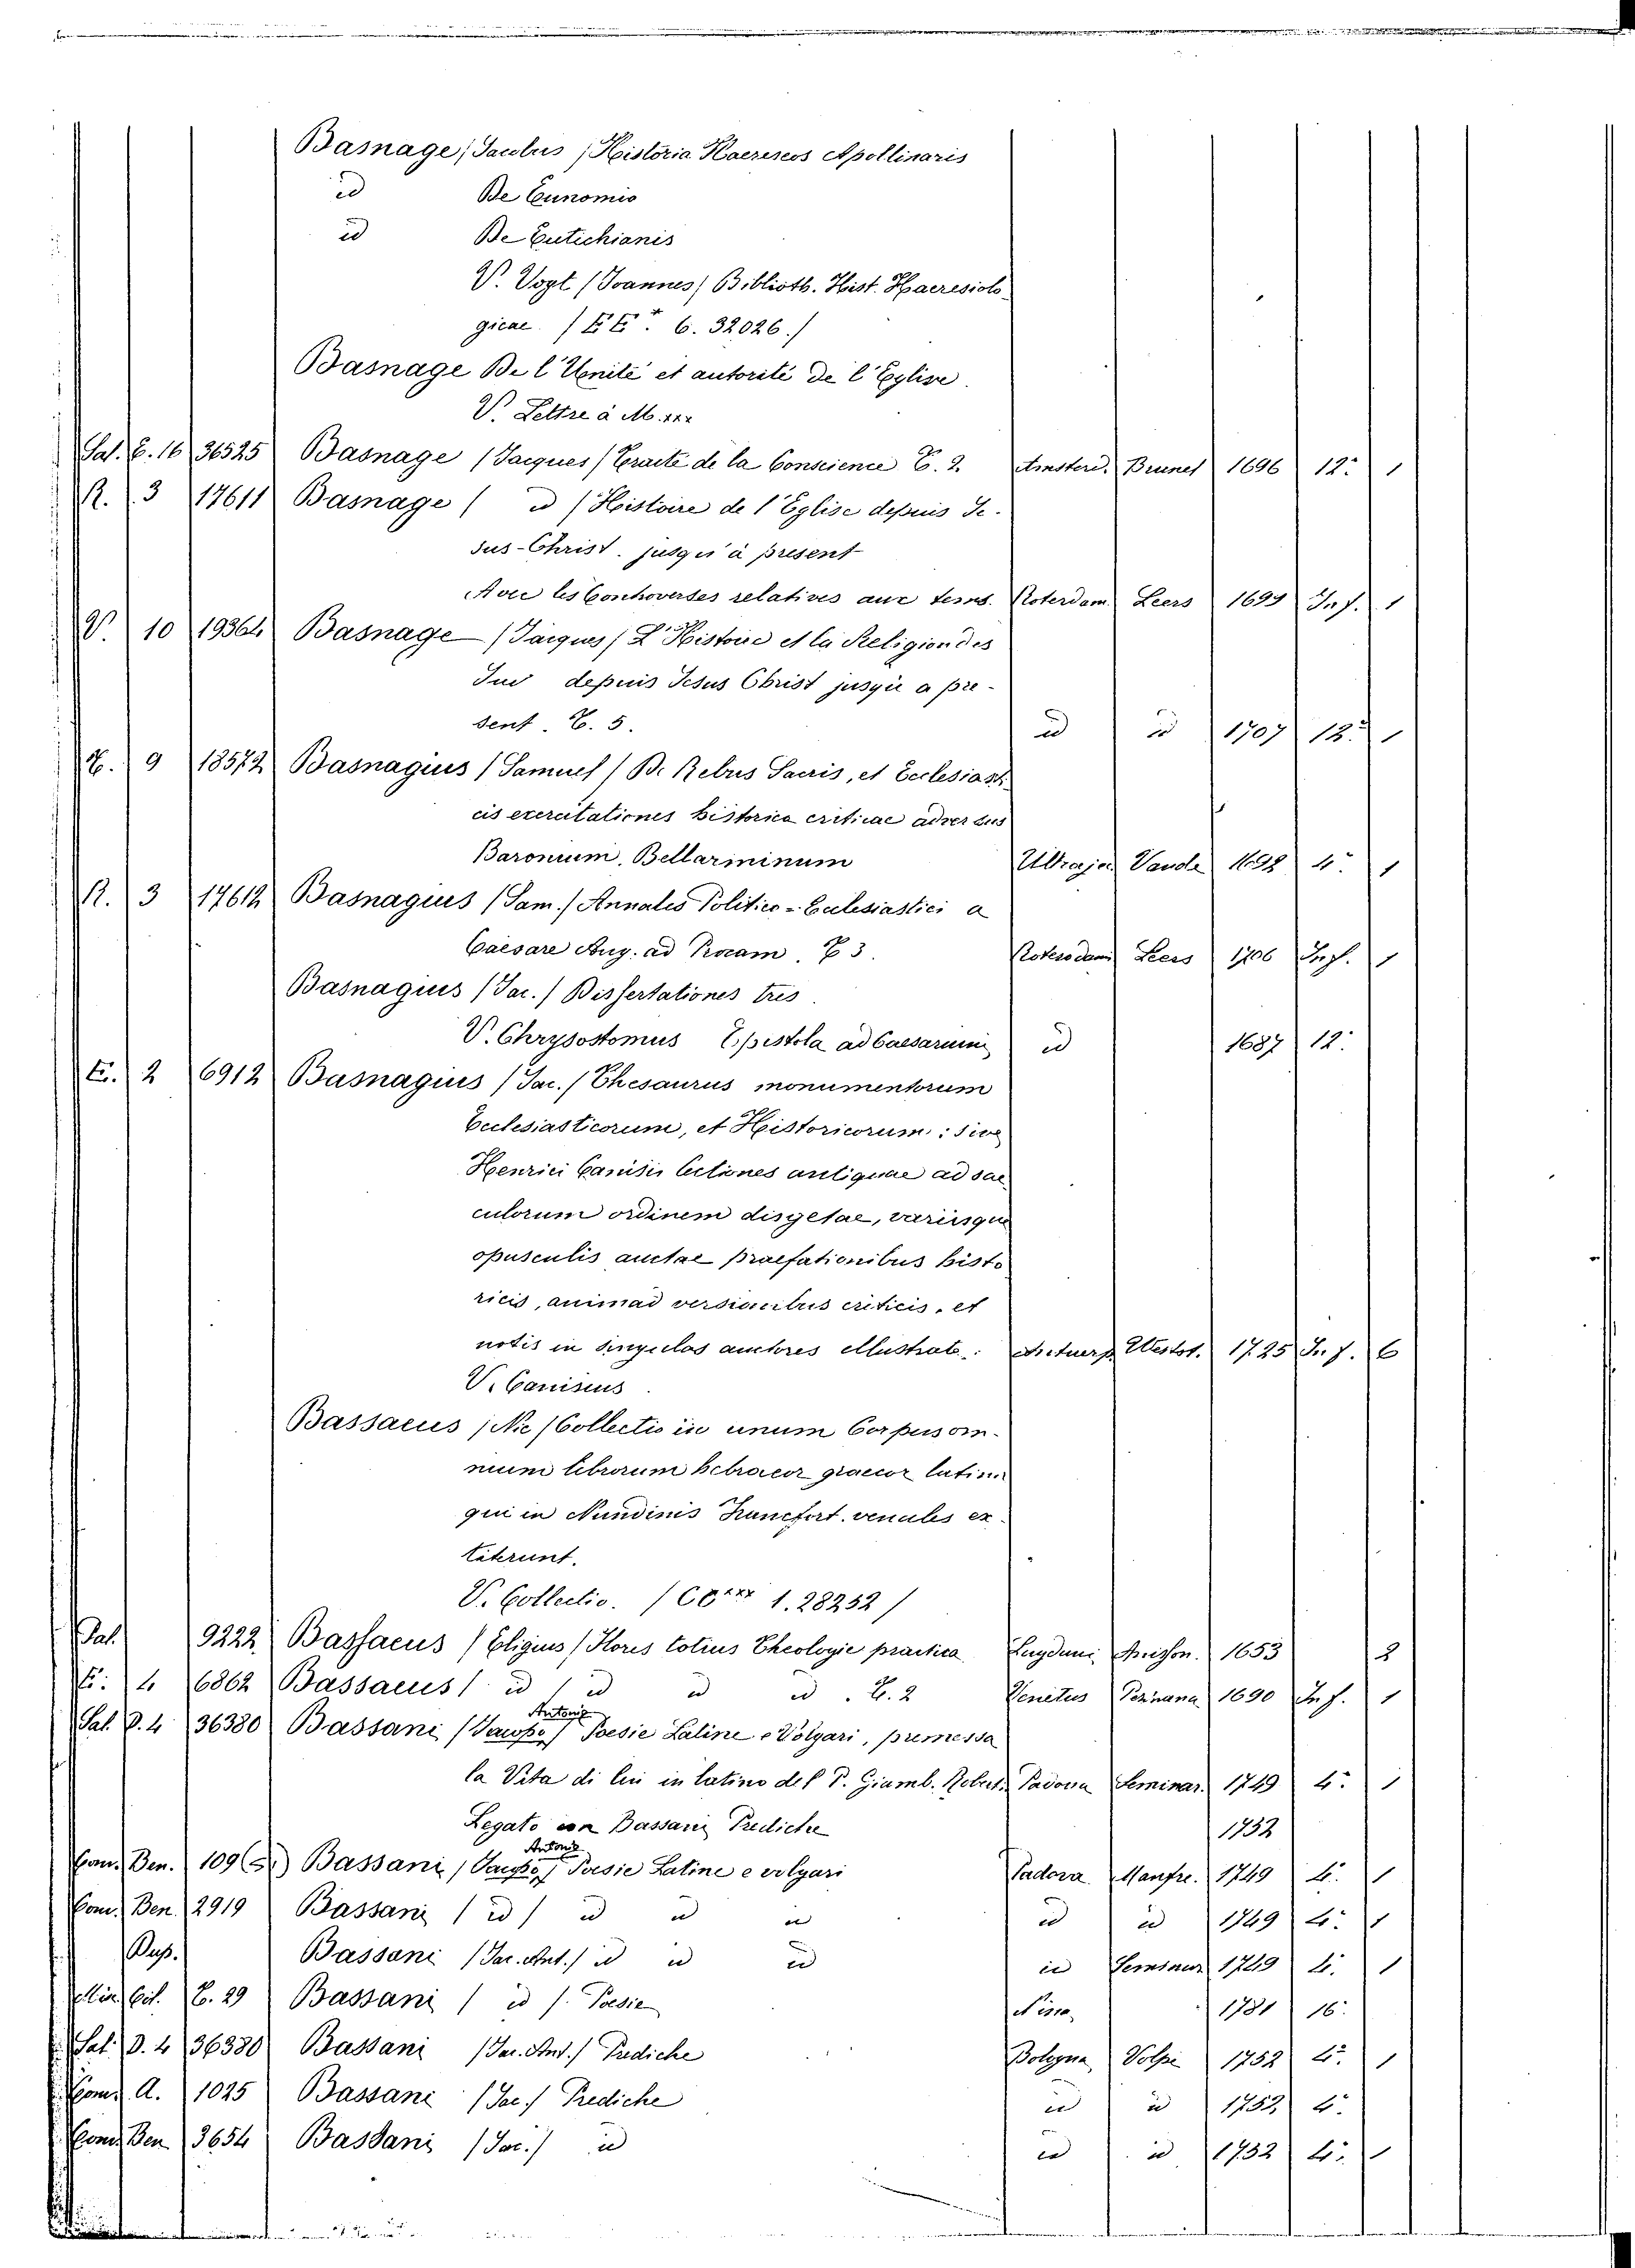 Basnage (Jacobus) Historia Haereseos Apollinaris
id De Eunomio
id De Eutichianis
V. Vogt (Joannes) Biblioth. Hist. Haeresiolo
gicae. (EE⁺. 6. 32026.)
Basnage De l'Unité et autorité de l'Eglise.
V. Lettre à M. xxx
Sal. E. 16 36525 Basnage (Jacques) Traité de la Conscience T. 2. Amsterd. Brunel 1696 12: 1
R. 3 17611 Basnage ( id ) Histoire de l'Eglise depuis Je-
sus-Christ. jusqu'à present
Avec les Controverses relatives aux tems. Roterdam. Leers 1699 In f. 1
V. 10 19364 Basnage (Jacques) L'Histoire et la Religion des
Jui depuis Jesus Christ jusqu'a pre-
sent. T. 5. id id 1707 12: 1
T. 9 18572 Basnagius (Samuel) De Rebus Sacris, et Ecclesiasti
cis exercitationes historico criticae adversus
Baronium, Bellarminum Ultraject. Vande 1692 4: 1
R. 3 17612 Basnagius (Sam.) Annales Politico-Eclesiastici a
Caesare Aug. ad Phocam. T 3. Roterodami Leers 1706 In f. 1
Basnagius (Jac.) Dissertationes tres.
V. Chrysostomus Epistola ad Caesarium id 1687 12:
E. 2 6912 Basnagius (Jac.) Thesaurus monumentorum
Ecclesiasticorum, et Historicorum: sive
Henrici Canisii lectiones antiquae ad sae
culorum ordinem disgetae, variisque
opusculis auctae praefationibus histo
ricis, animad versionibus criticis, et
notis in singulos auctores illustrate: Antuerp. Westet. 1725 In f. 6
V. Canisius
Bassaeus (Nic) Collectio in unum Corpus om-
nium librorum hebraeor graecor latinor
qui in Nundinis Francfort. venales ex-
titerunt.
V. Collectio. (CC xxx 1. 28252)
Sal. 9222 Bassaeus (Eligius) Flores totius Theologie practica Lugduni Anisson. 1653 2
E. 4 6862 Bassaeus ( id ) id id id. T. 2 Venetiis Pezzana 1690 In f. 1
Sal. D. 4 36380 Bassani (Jacopo Antonio) Poesie Latine e Volgari, premessa
la Vita di lui in latino del P. Giamb. Robert. Padova Seminar. 1749 4: 1
Legato con Bassani Prediche 1752
Com. Ben. 109 Bassani (Jacopo Antonio) Poesie Latine e volgari Padova Manfre. 1749 4: 1
Com. Ben. 2919 Bassani ( id ) id id id id id 1749 4: 1
Dup. Bassani (Jac. Ant.) id id id id Seminar 1749 4: 1
Min. Cit. C. 29 Bassani ( id ) Poesie Nizza 1781 16:
Sal. D. 4 36380 Bassani (Jac. Ant.) Prediche Bologna Volpe 1752 4: 1
Com. A. 1025 Bassani (Jac.) Prediche id id 1752 4:
Com. Ben 3654 Bassani (Jac.) id id id 1752 4: 1